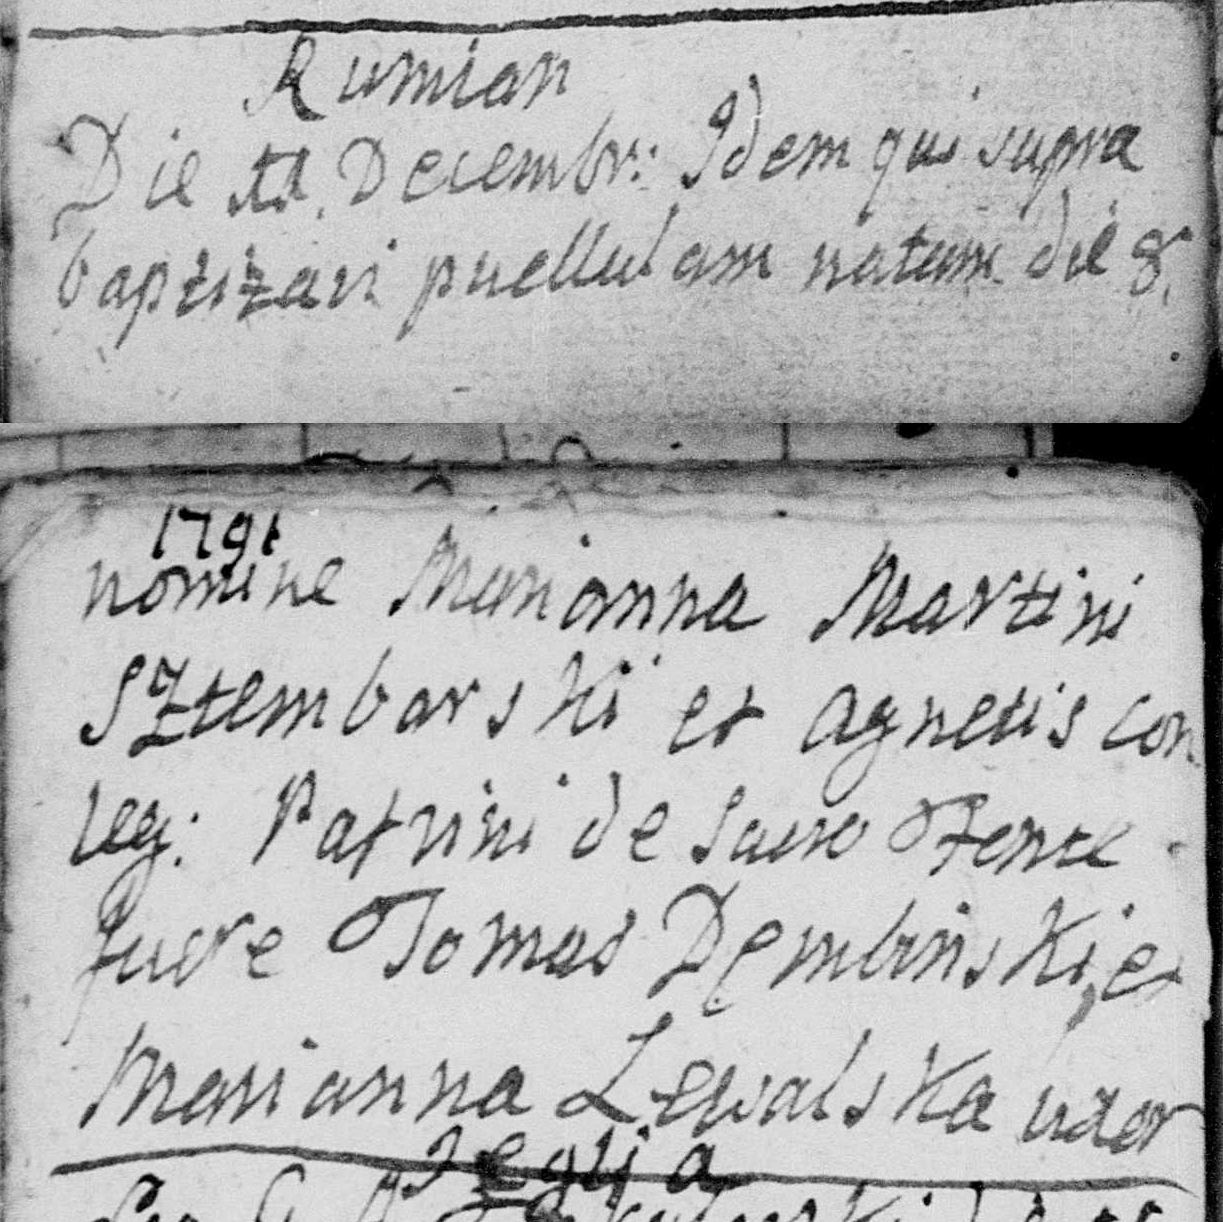 Rumian
Die 11. Decembr: Idem qui supra
baptizavi puellulam natam die 8.
1791
nomine Marianna Martini
Sztembarski et Agnetis con
leg: Patrini de Sacro Fonte
fuere Tomas Dembinski, et
Marianna Lewalska uxor